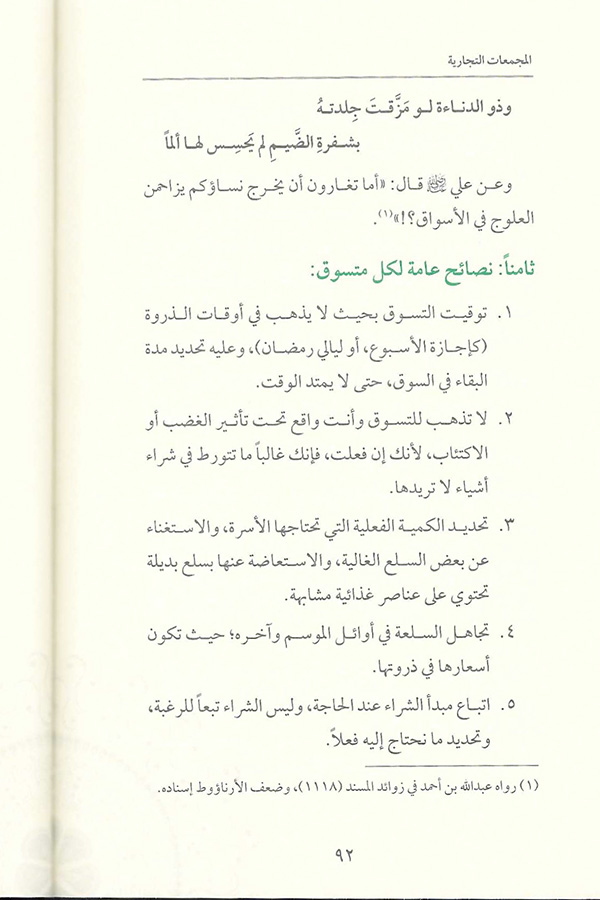 المجمعات التجارية
وذو الدناءة لو مَزَّقتَ جِلدتهُ
بشفرةِ الضَّيمِ لم يَحسِس لها ألماً
وعن علي رضي الله عنه قال: «أما تغارون أن يخرج نساؤكم يزاحمن
العلوج في الأسواق؟!»(١).
ثامناً: نصائح عامة لكل متسوق:
١. توقيت التسوق بحيث لا يذهب في أوقات الذروة
(كإجازة الأسبوع، أو ليالي رمضان)، وعليه تحديد مدة
البقاء في السوق، حتى لا يمتد الوقت.
٢. لا تذهب للتسوق وأنت واقع تحت تأثير الغضب أو
الاكتئاب، لأنك إن فعلت، فإنك غالباً ما تتورط في شراء
أشياء لا تريدها.
٣. تحديد الكمية الفعلية التي تحتاجها الأسرة، والاستغناء
عن بعض السلع الغالية، والاستعاضة عنها بسلع بديلة
تحتوي على عناصر غذائية مشابهة.
٤. تجاهل السلعة في أوائل الموسم وآخره؛ حيث تكون
أسعارها في ذروتها.
٥. اتباع مبدأ الشراء عند الحاجة، وليس الشراء تبعاً للرغبة،
وتحديد ما نحتاج إليه فعلاً.
(١) رواه عبدالله بن أحمد في زوائد المسند (١١١٨)، وضعف الأرناؤوط إسناده.
٩٢